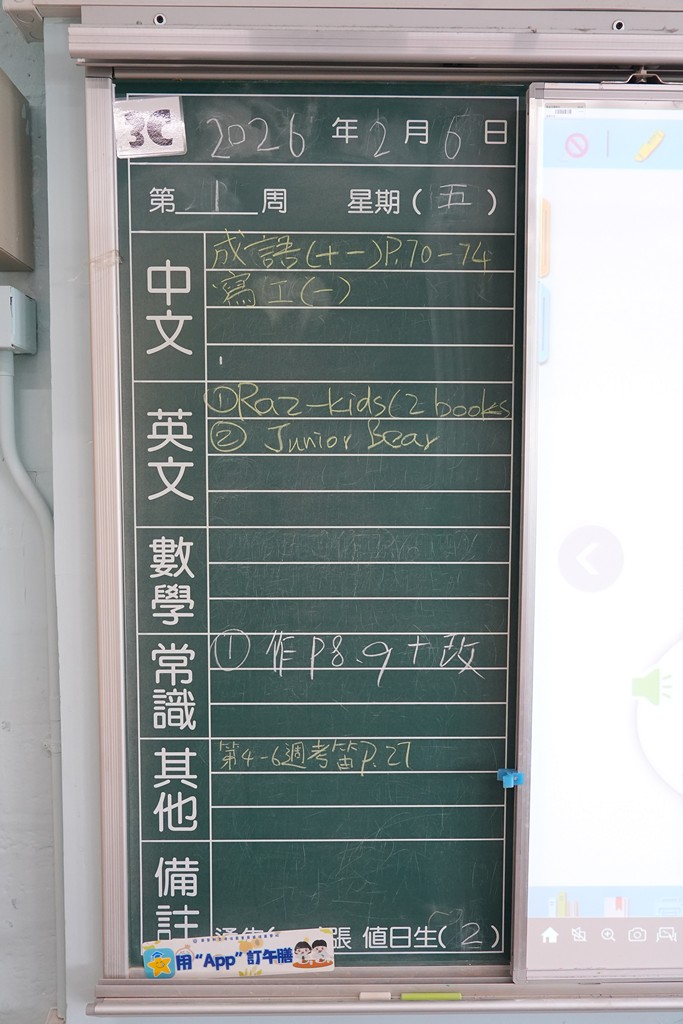 3C
2026 年 2 月 6 日
第 1 周 星期 ( 五 )
中文
成語(十一)P.70-74
寫工(一)
英文
①Raz-kids(2 books
② Junior Bear
數學
常識
① 作 P8.9 + 改
其他
第4-6週考笛P.27
備註
張 值日生( 2 )
用“App”訂午膳